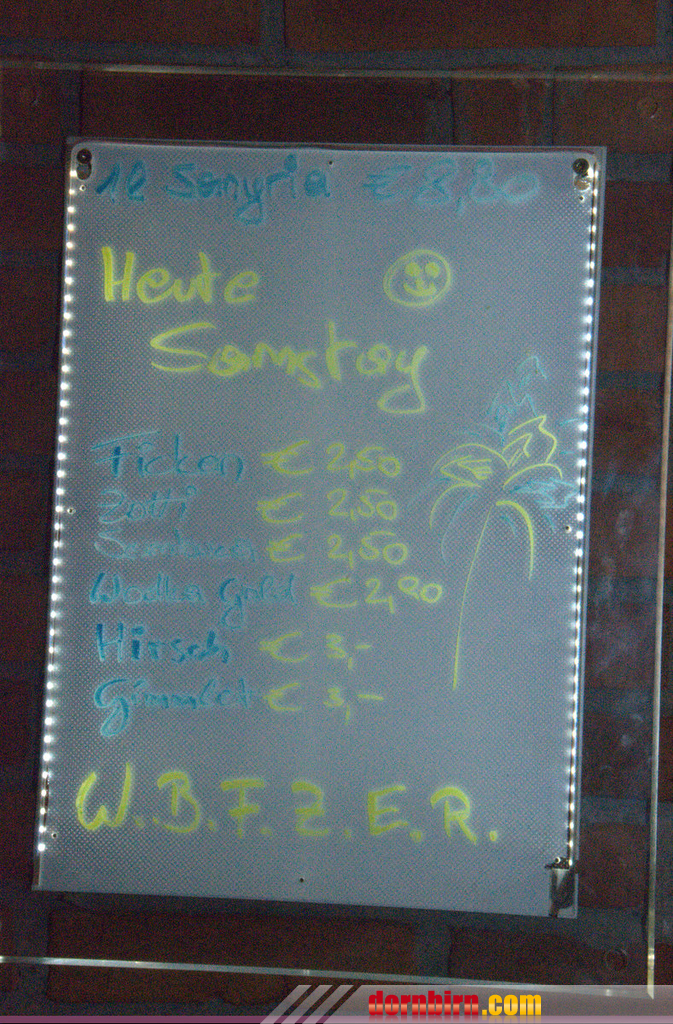 1l Sangria € 8,80
Heute
Samstag
Ficken € 2,50
Batti € 2,50
Sambuca € 2,50
Wodka Gold € 2,80
Hirsch € 3,-
Gimmlet € 3,-
W.B.F.Z.E.R.
dornbirn.com